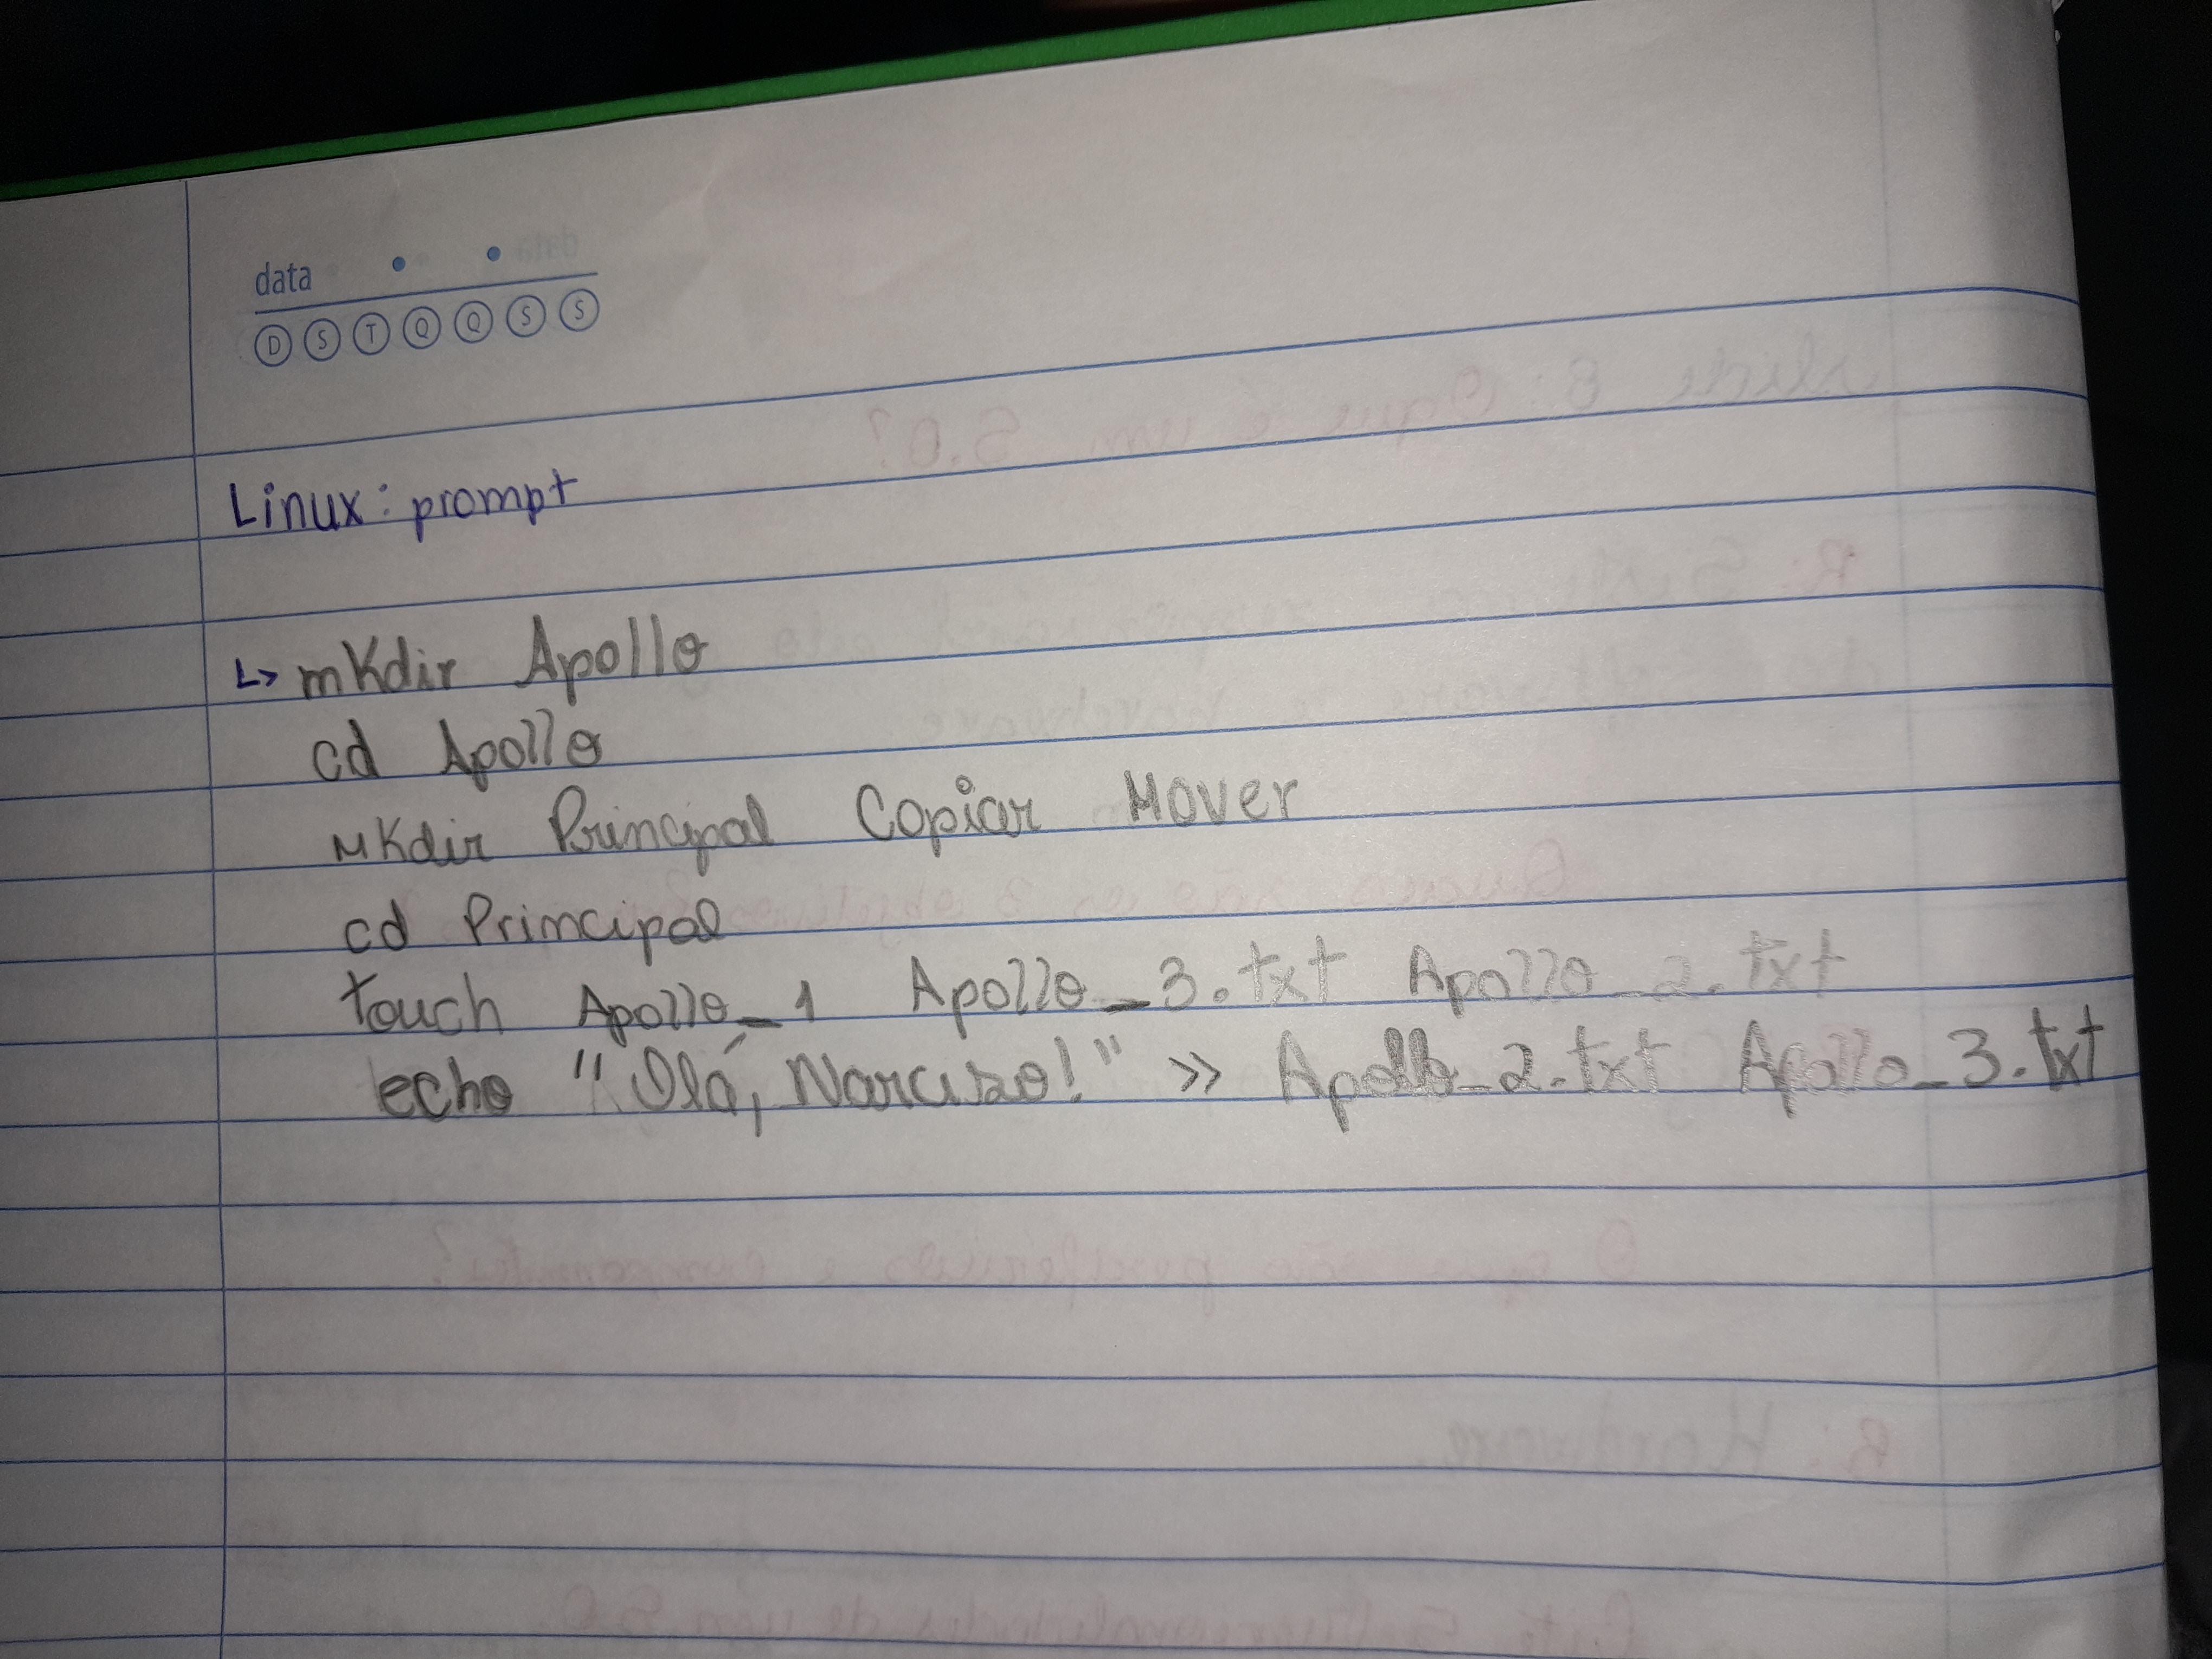 data
D S T Q Q S S
Linux: prompt
↳ mkdir Apollo
cd Apollo
mkdir Principal Copiar Mover
cd Principal
touch Apollo_1 Apollo_3.txt Apollo_2.txt
echo "Olá, Narciso!" >> Apollo_2.txt Apollo_3.txt